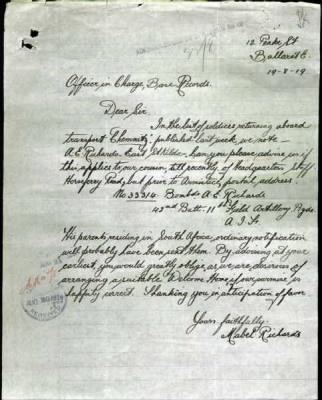 12 Peake St
Ballarat E.
19-8-19
Officer in Charge, Base Records.
Dear Sir
In the list of soldiers returning aboard
transport "Chemnitz" published last week, we note —
A. E. Richards. East St Kilda. Can you please advise us if
this applies to our cousin, till recently of Headquarters Staff
Horseferry Road, but prior to Armistice, postal address.
No 33314. Bombr A. E. Richards
43rd Batt. 11th Field Artillery Brigde.
A.I.F.
His parents, residing in South Africa, ordinary notification
will probably have been sent them. By advising at your
earliest, you would greatly oblige, as we are desirous of
arranging a suitable Welcome Home if our surmise is
happily correct. Thanking you in anticipation of favor
Yours faithfully
Mabel Richards